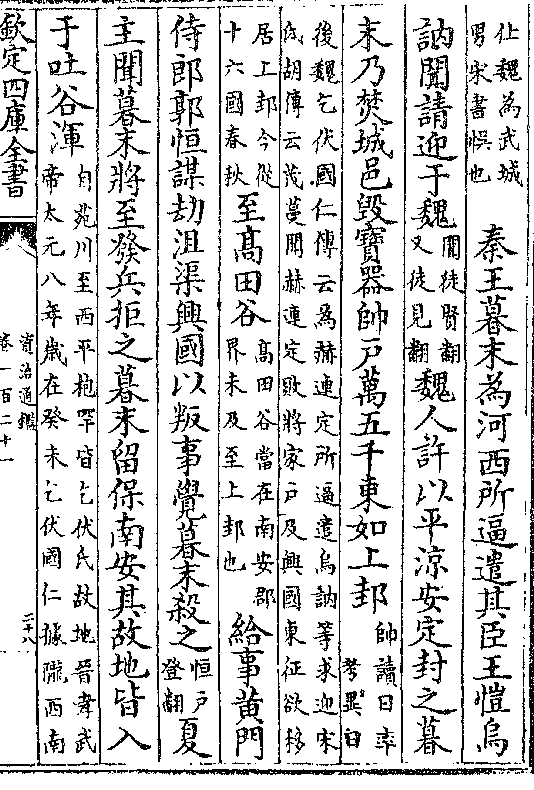 仕魏為武城
男宋書悞也
秦王暮末為河西所逼遣其臣王愷烏
訥闐請迎于魏
闐徒賢翻
又徒見翻
魏人許以平涼安定封之暮
末乃焚城邑毁寶器帥戸萬五千東如上邽
帥讀曰率
考異曰
後魏乞伏國仁傳云為赫連定所逼遣烏訥等求迎宋
氐胡傳云茂蔓聞赫連定敗將家戸及興國東征欲移
居上邽今從
十六國春秋
至髙田谷
高田谷當在南安郡
界未及至上邽也
給事黄門
侍郎郭恒謀劫沮渠興國以叛事覺暮末殺之
恒戸
登翻
夏
主聞暮末將至發兵拒之暮末留保南安其故地皆入
于吐谷渾
自苑川至西平枹罕皆乞伏氏故地晉孝武
帝太元八年歲在癸未乞伏國仁據隴西南
欽定四庫全書
資治通鑑
卷一百二十一
二十八